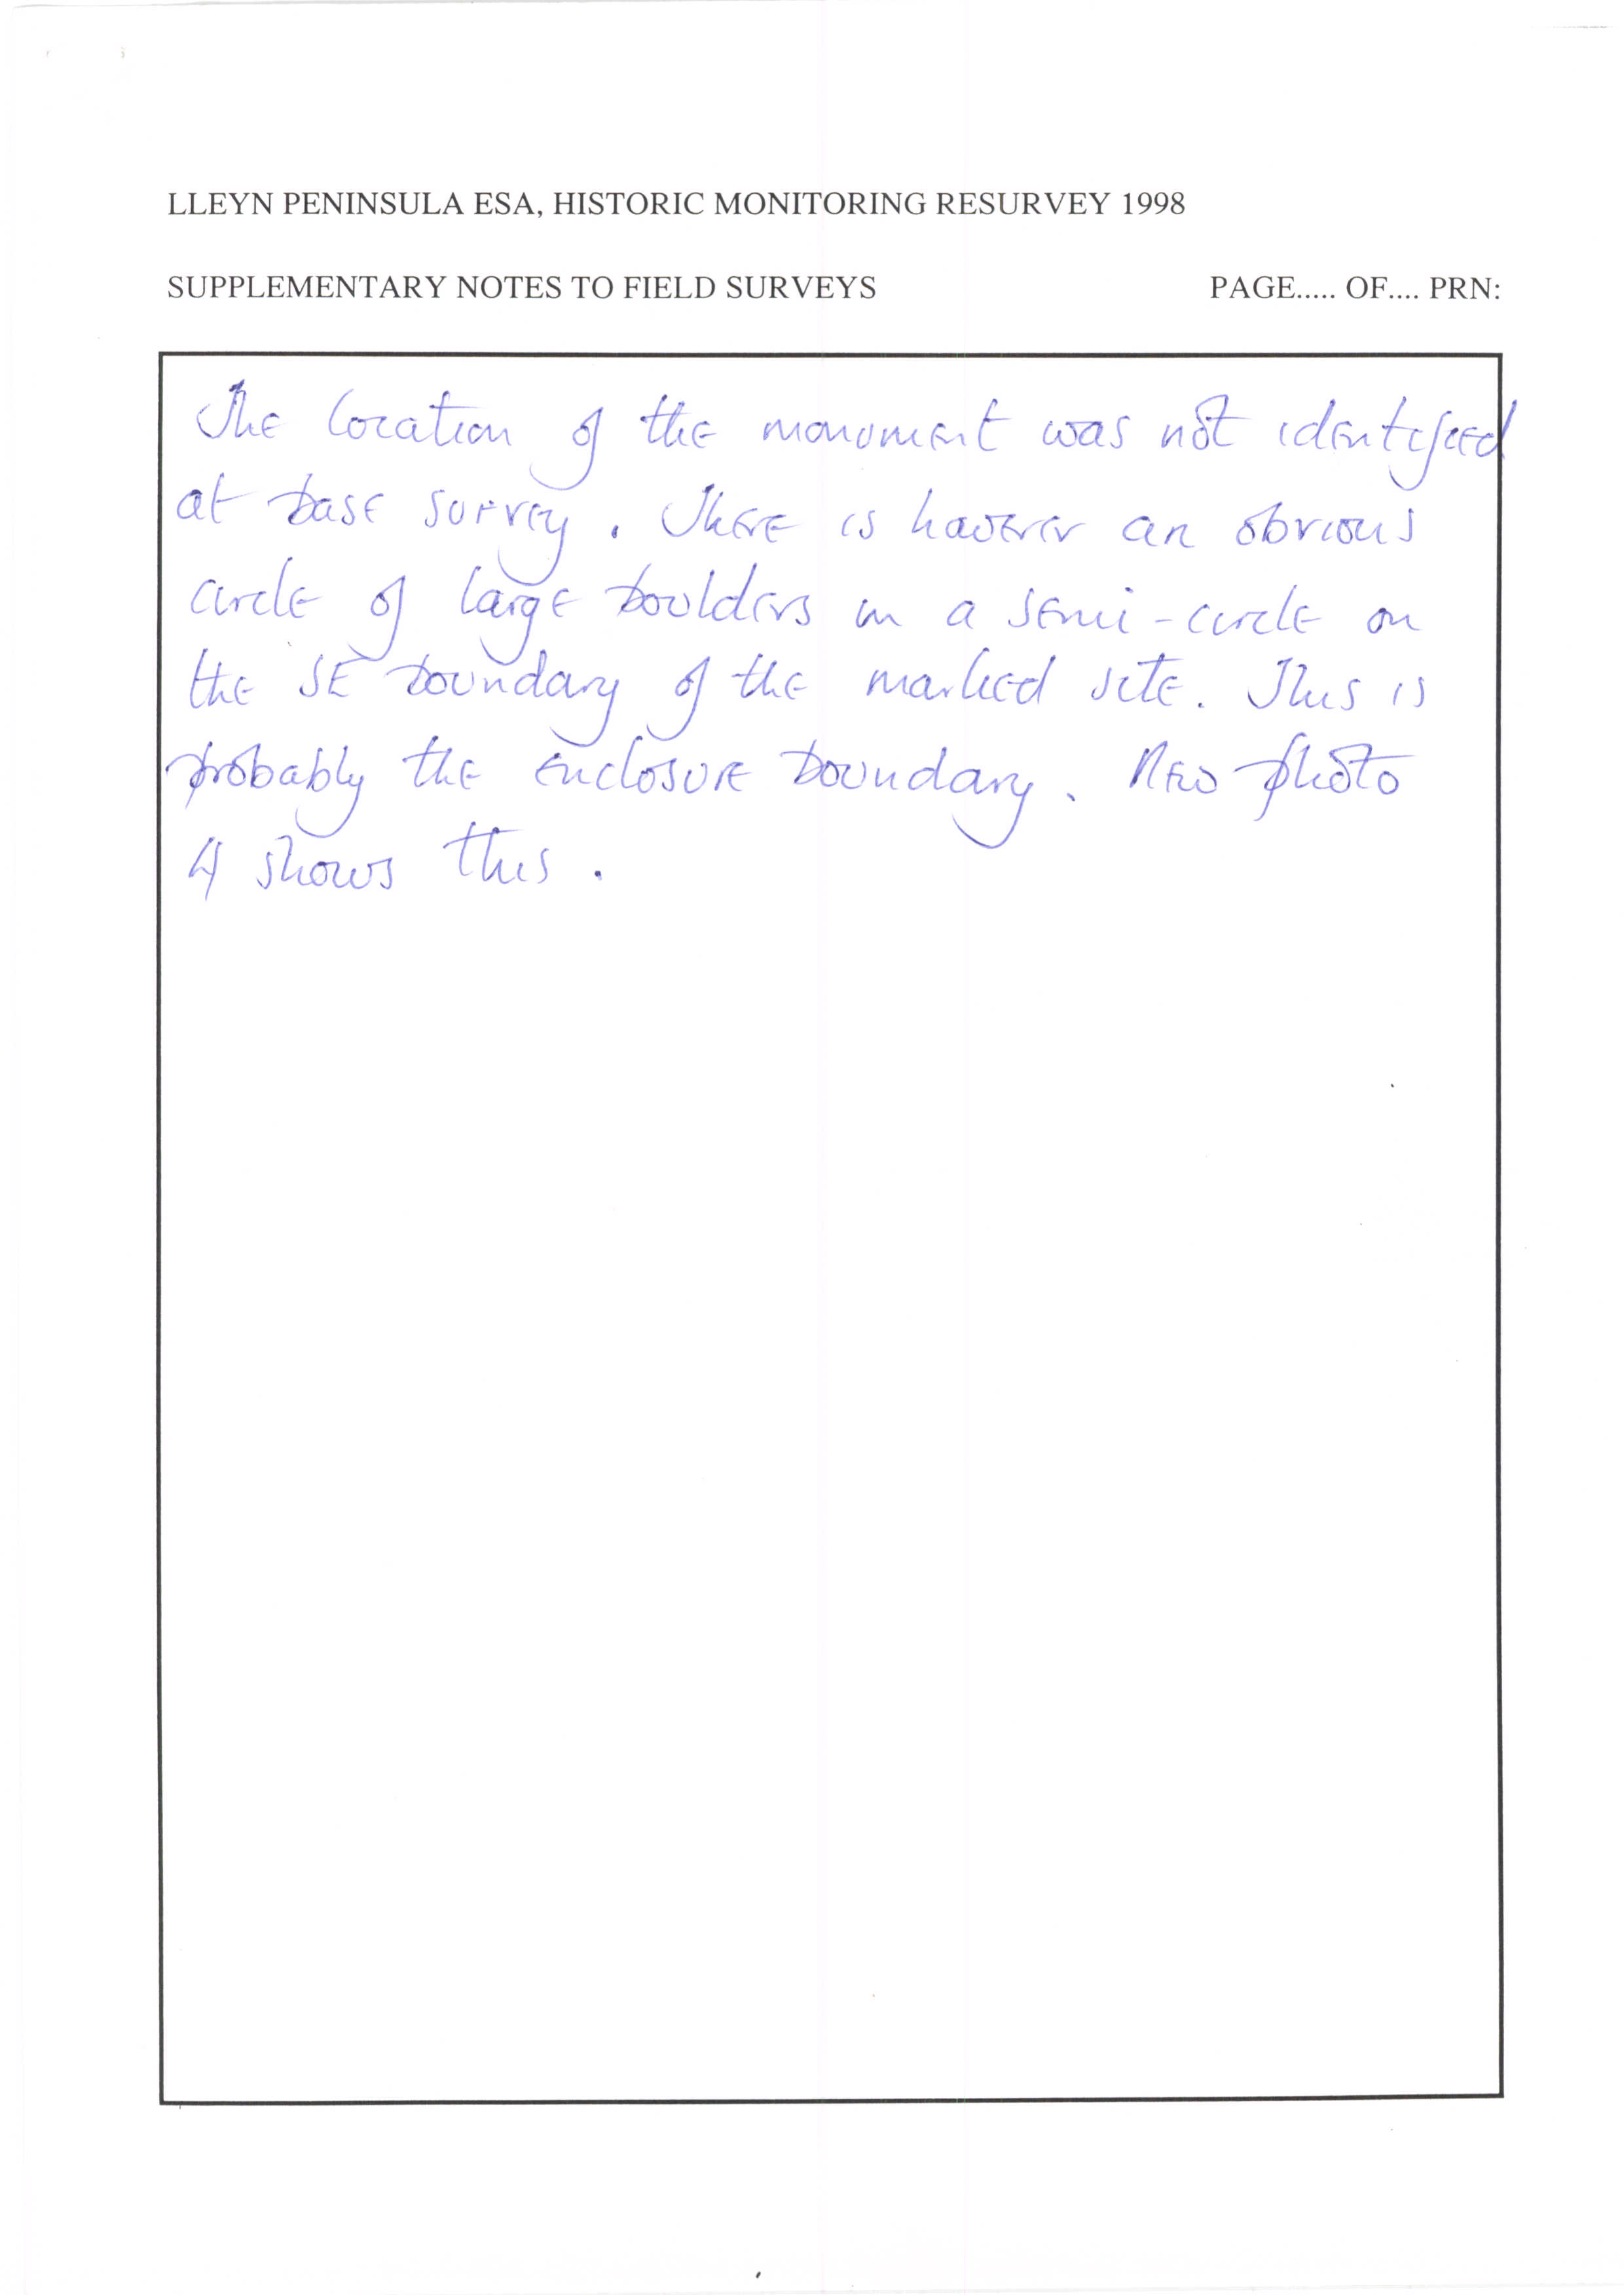 LLEYN PENINSULA ESA, HISTORIC MONITORING RESURVEY 1998
SUPPLEMENTARY NOTES TO FIELD SURVEYS PAGE..... OF.... PRN:
The location of the monument was not identified
at base survey. There is however an obvious
circle of large boulders in a semi-circle on
the SE boundary of the marked site. This is
probably the enclosure boundary. New photo
4 shows this.